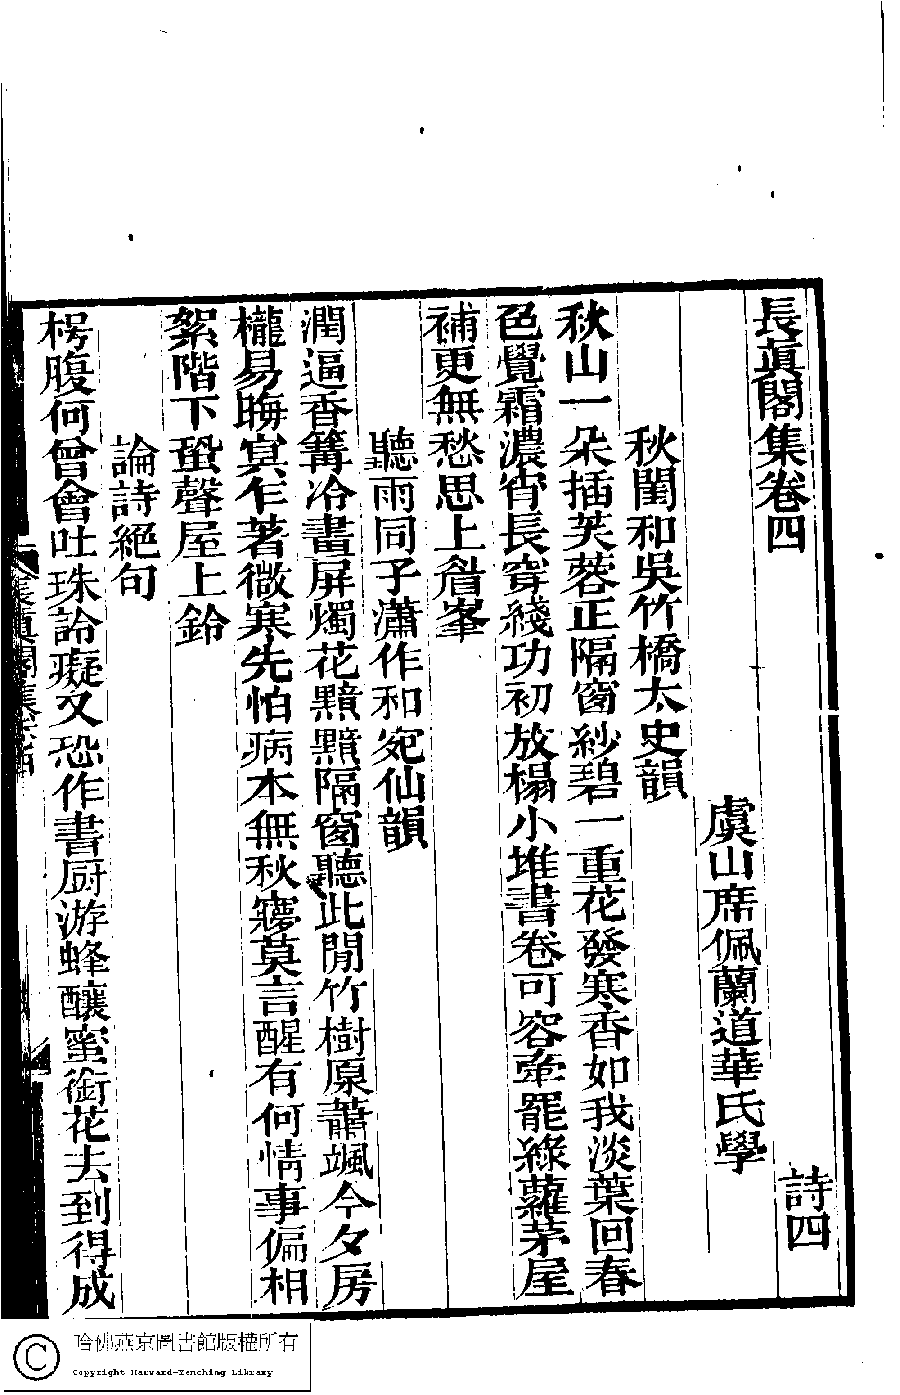 長眞閣集卷四
詩四
虞山席佩蘭道華氏學
秋閨和吳竹橋太史韻
秋山一朶插芙蓉正隔窗紗碧一重花發寒香如我淡葉回春
色覺霜濃宵長穿綫功初放榻小堆書卷可容牽罷綠蘿茅屋
補更無愁思上眉峯
聽雨同子瀟作和宛仙韻
潤逼香篝冷畫屏燭花黯黯隔窗聽此閒竹樹原蕭颯今夕房
櫳易晦冥乍著微寒先怕病本無秋寢莫言醒有何情事偏相
絮階下蛩聲屋上鈴
論詩絕句
枵腹何曾會吐珠論癡又恐作書厨游蜂釀蜜銜花去到得成
長眞閣集
哈佛燕京圖書館版權所有
Copyright Harvard-Yenching Library